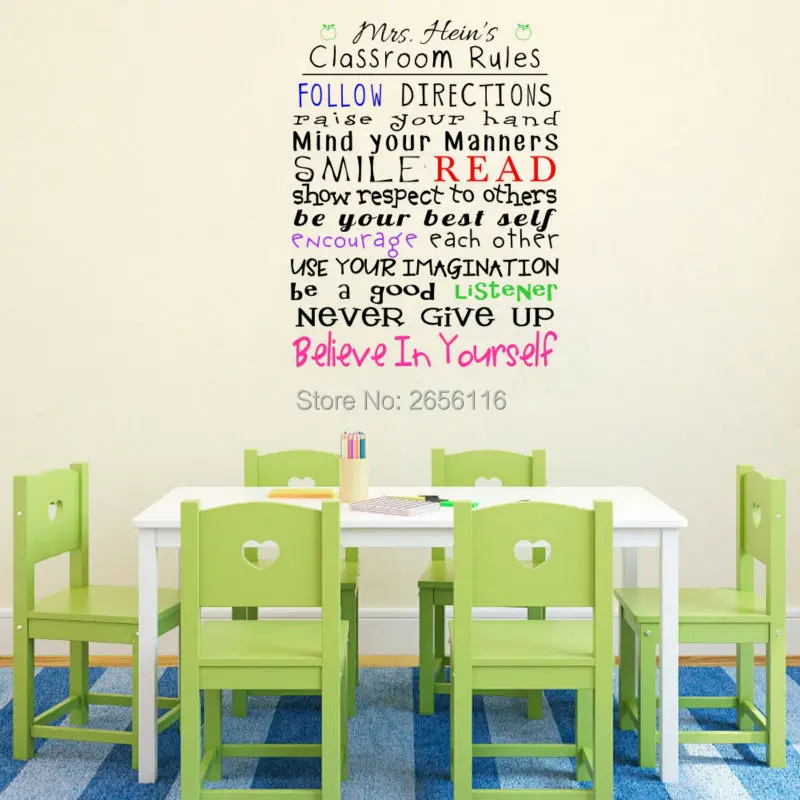 Mrs. Hein's
Classroom Rules
FOLLOW DIRECTIONS
raise your hand
Mind your Manners
SMILE READ
show respect to others
be your best self
encourage each other
USE YOUR IMAGINATION
be a good Listener
NEVER GIVE UP
Believe In Yourself
Store No: 2656116